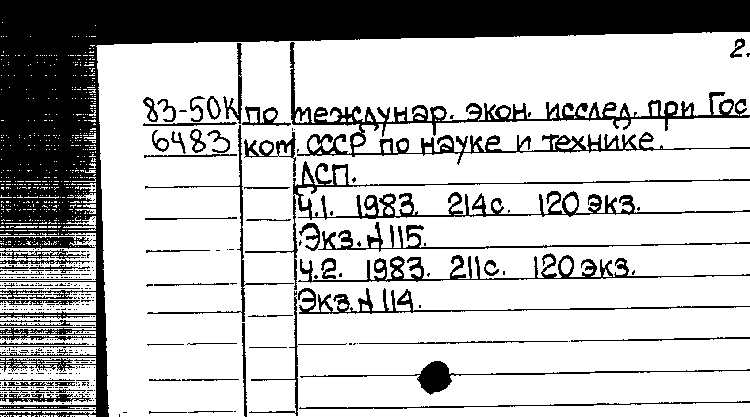 2.
83-50К по междунар. экон. исслед. при Гос
6483 ком. СССР по науке и технике.
ДСП.
Ч.1. 1983. 214с. 120 экз.
Экз.№115.
Ч.2. 1983. 211с. 120 экз.
Экз.№114.